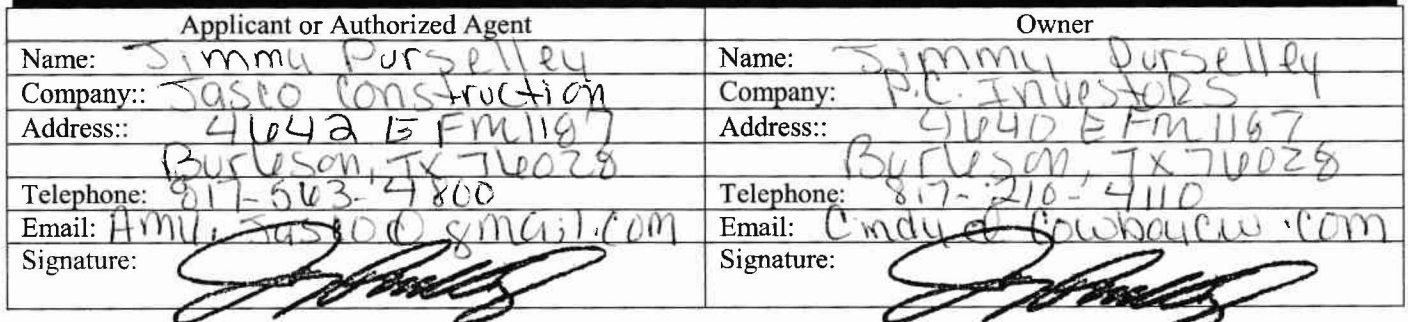 Applicant or Authorized Agent Owner
Name: Jimmy Purselley Name: Jimmy Purselley
Company:: Jasco Construction Company: P.C. Investors
Address:: 4642 E FM 1187 Address:: 4640 E FM 1187
Burleson, TX 76028 Burleson, TX 76028
Telephone: 817-563-4800 Telephone: 817-210-4110
Email: Amy.Jasco@gmail.com Email: Cindy@Cowboycw.com
Signature: Signature: